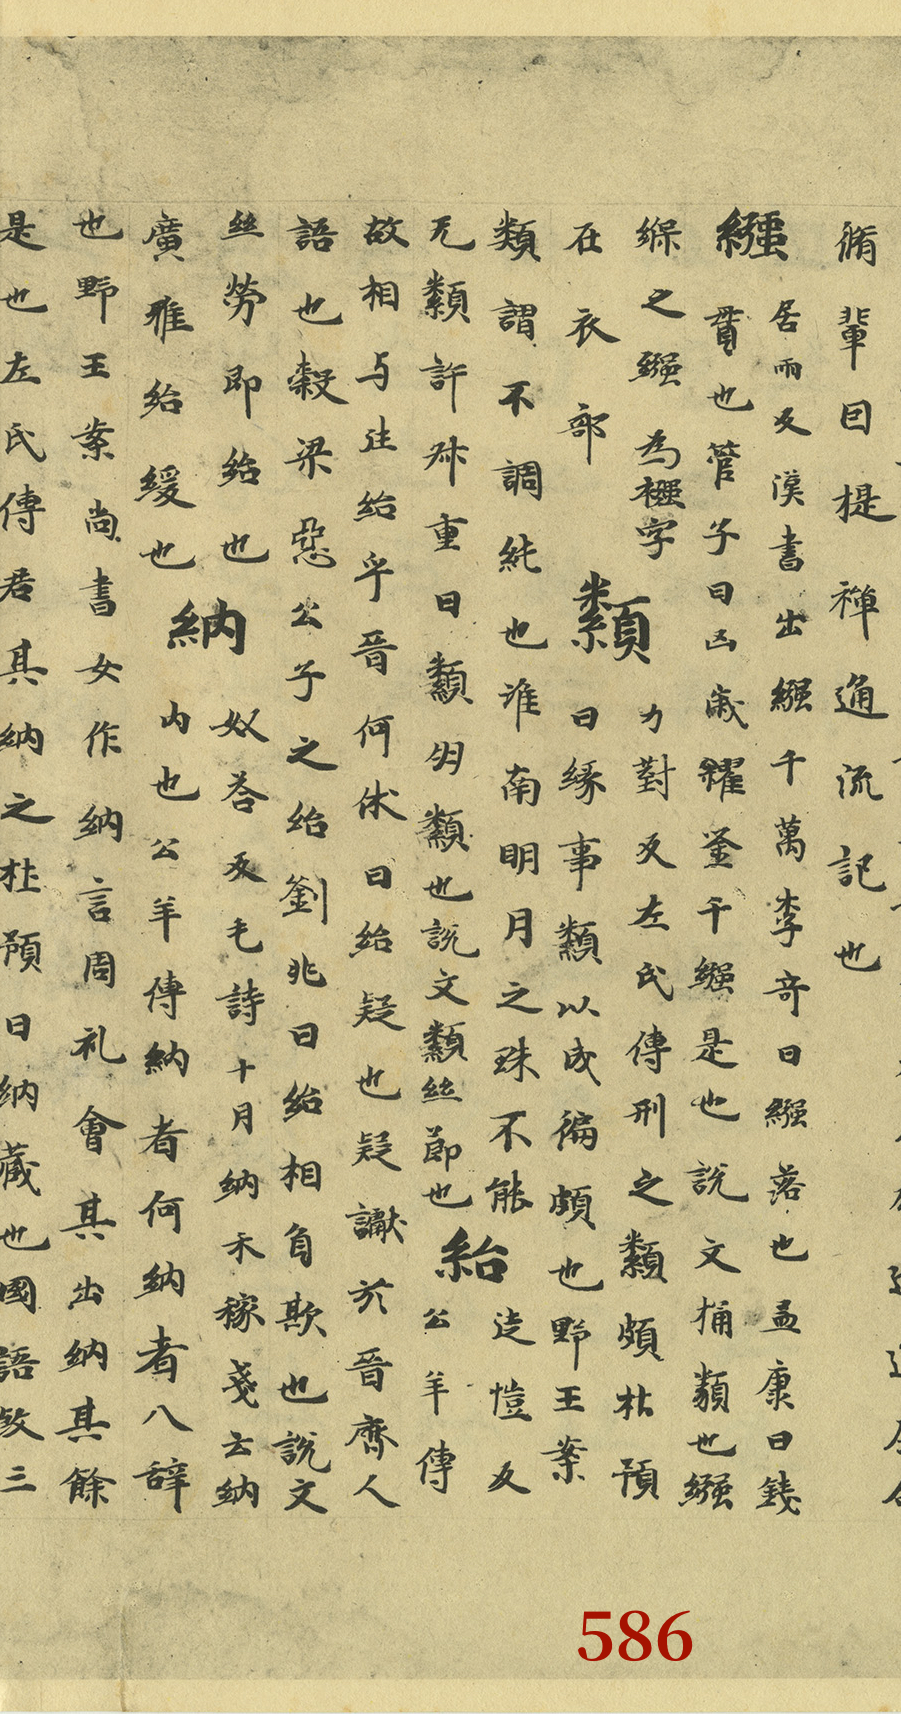 脩輩囙提禅通流記也
繦居兩反漢書出繦千萬李奇曰繦落也孟康曰錢
貫也管子曰凶歲糴釜千繦是也說文捅纇也繦
緥之繦為襁字
在衣部
纇力對反左氏傳刑之纇頗杜預
曰縁事纇以成徧頗也野王案
類謂不調純也淮南明月之珠不能
无纇許叔重曰纇明纇也說文纇絲節也
紿徒愷反
公羊傳
故相与詿紿乎晋何休曰紿疑也疑讞於晋齊人
語也穀梁惡公子之紿劉兆曰紿相負欺也說文
絲勞即紿也
廣雅紿緩也
納奴荅反毛詩十月納禾稼戔云納
内也公羊傳納者何納者入辞
也野王案尚書女作納言周礼會其出納其餘
是也左氏傳君其納之杜預曰納藏也國語敛三
586